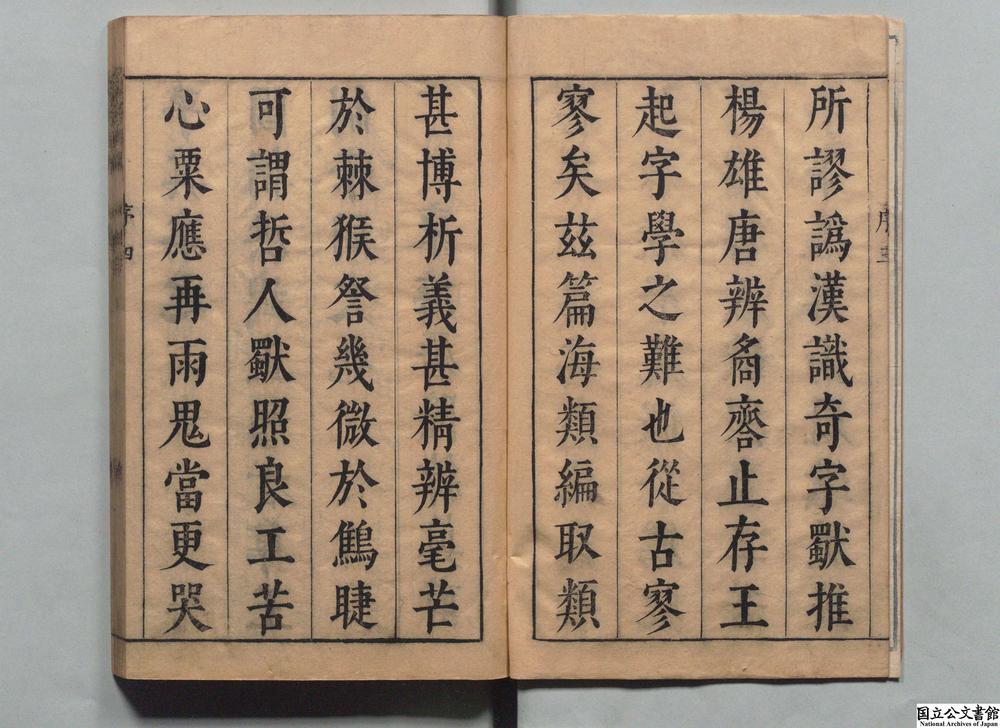 序三
所謬譌漢識奇字獨推
楊雄唐辨止存王
起字學之難也從古寥
寥矣茲篇海類編取類
甚博析義甚精辨毫芒
於棘猴詧幾微於鷦睫
可謂哲人獨照良工苦
心粟應再雨鬼當更哭
序四
国立公文書館
National Archives of Japan